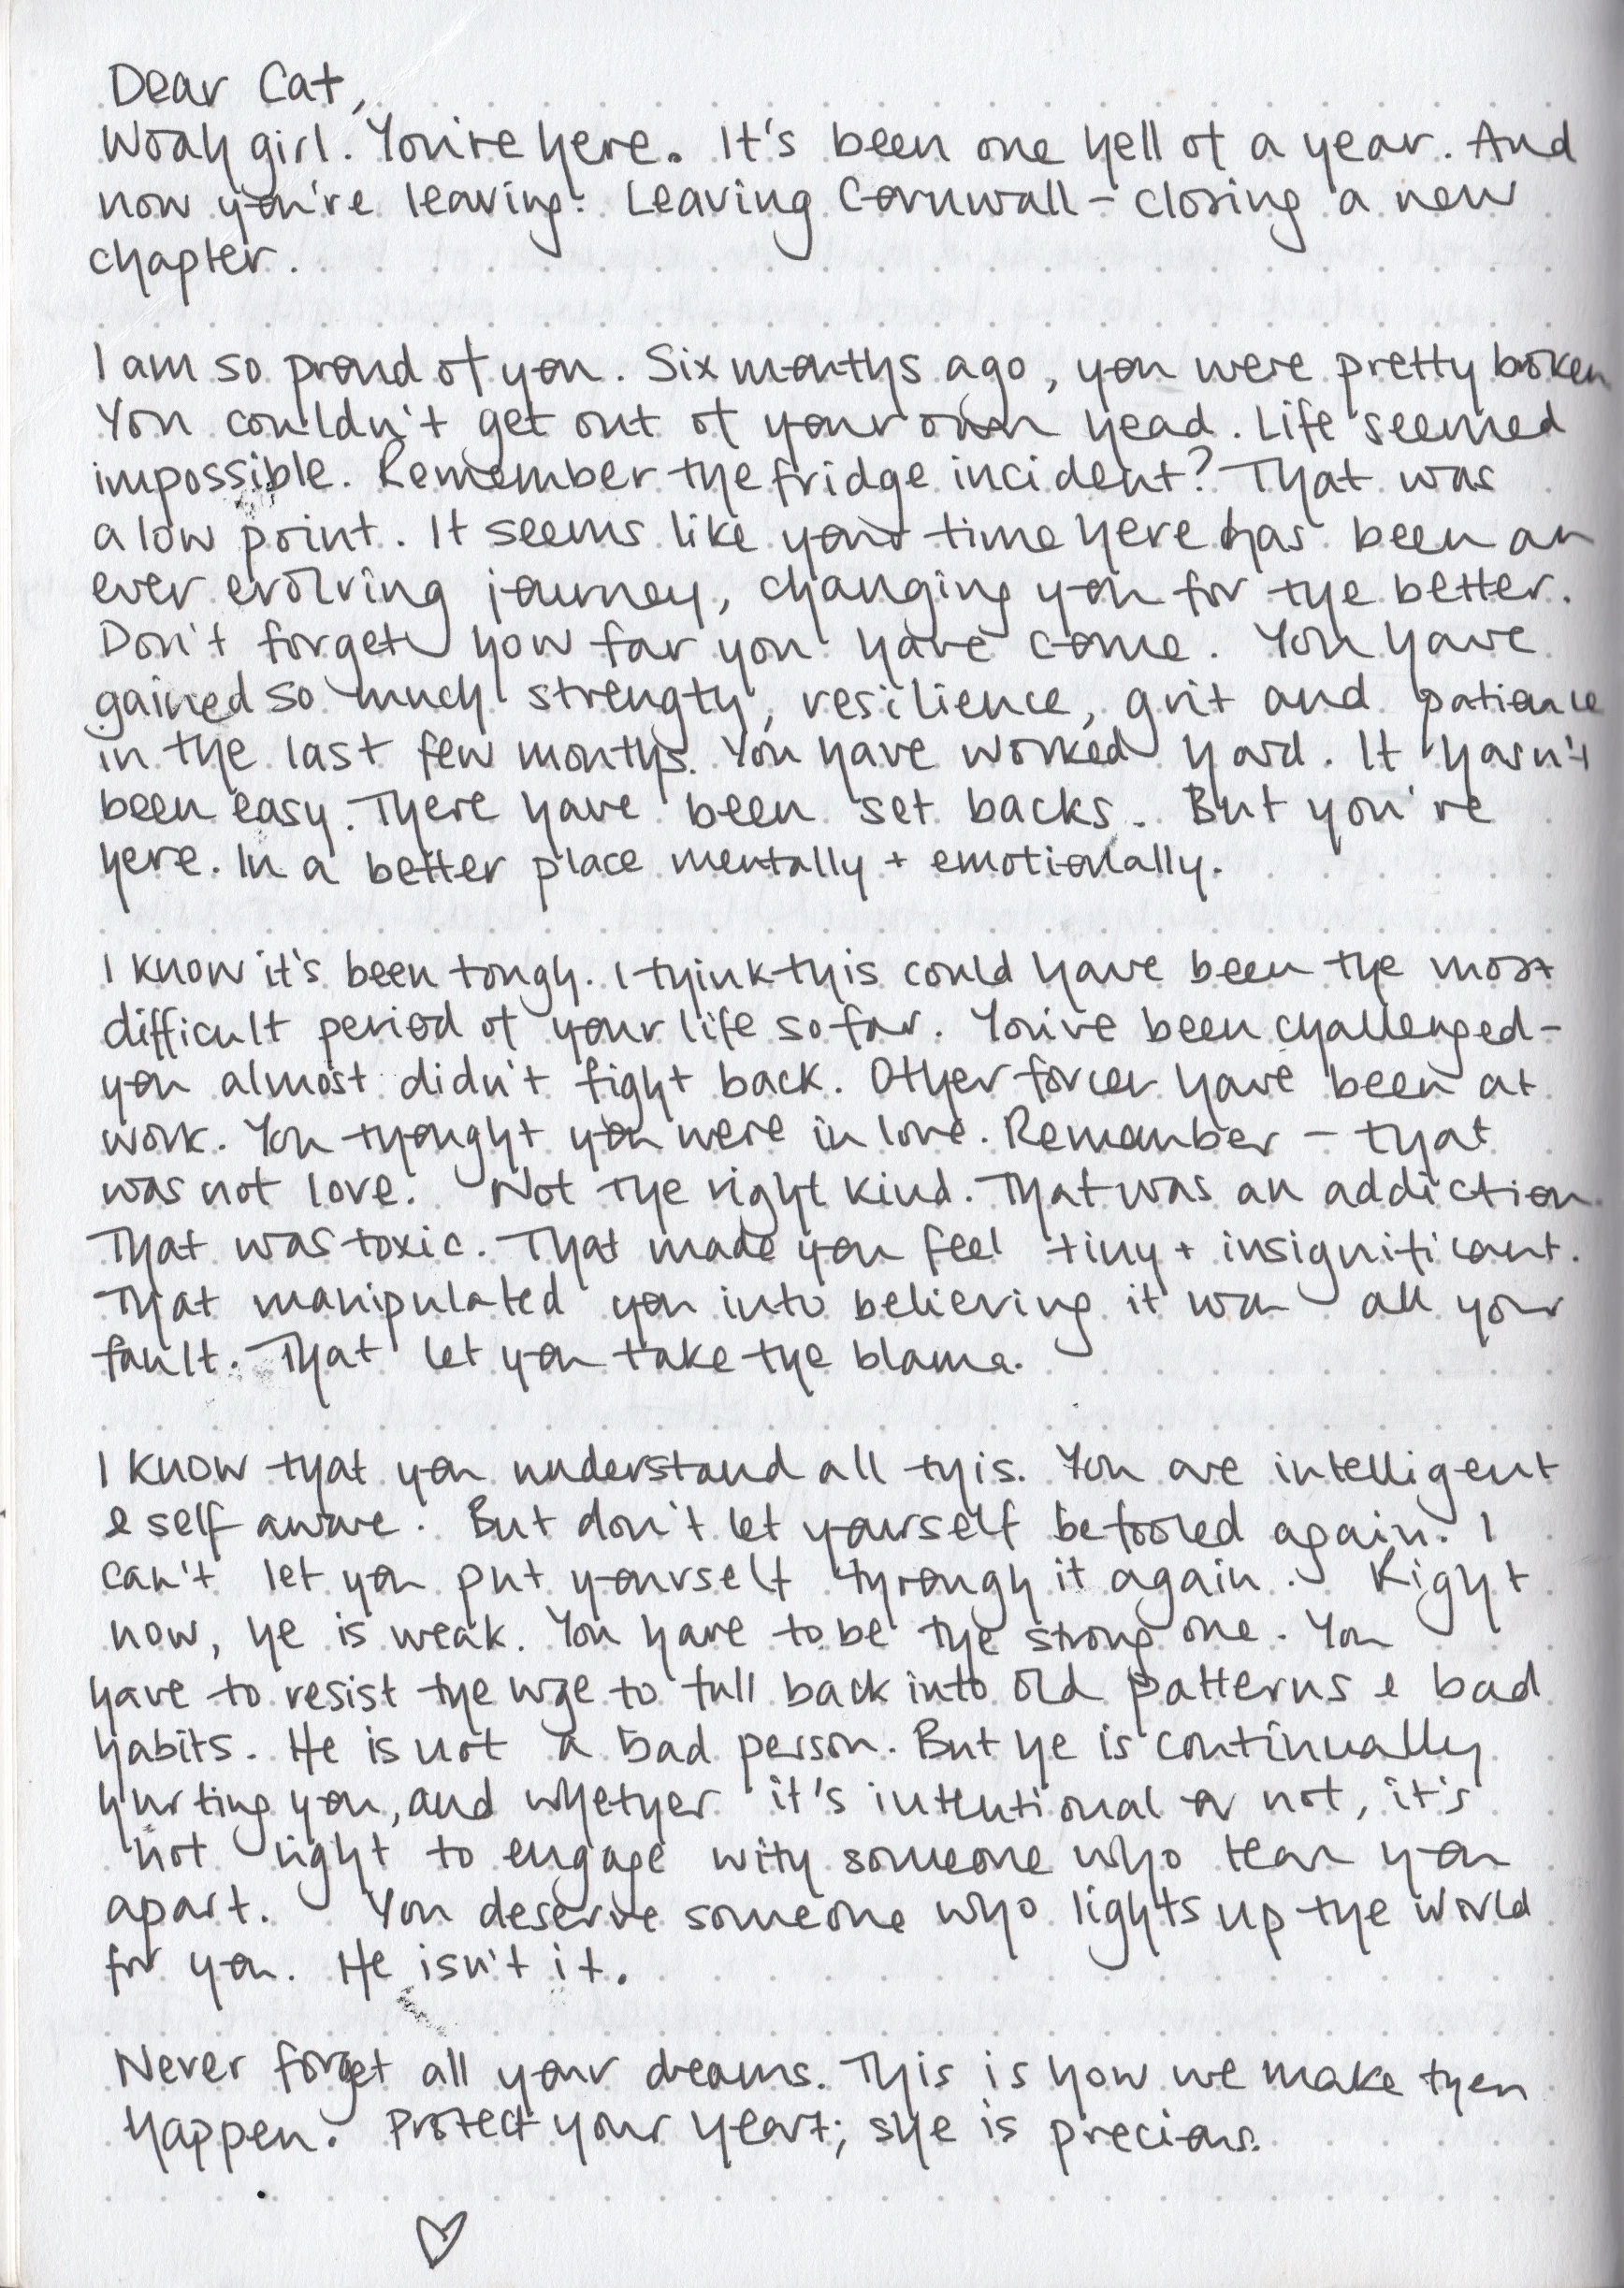 Dear Cat,
Woah girl. You're here. It's been one hell of a year. And
now you're leaving. Leaving Cornwall - closing a new
chapter.
I am so proud of you. Six months ago, you were pretty broken
You couldn't get out of your own head. Life seemed
impossible. Remember the fridge incident? That was
a low point. It seems like your time here has been an
ever evolving journey, changing you for the better.
Don't forget how far you have come. You have
gained so much strength, resilience, grit and patience
in the last few months. You have worked hard. It hasn't
been easy. There have been set backs. But you're
here. In a better place mentally + emotionally.
I know it's been tough. I think this could have been the most
difficult period of your life so far. You've been challenged -
you almost didn't fight back. Other forces have been at
work. You thought you were in love. Remember - that
was not love. Not the right kind. That was an addiction.
That was toxic. That made you feel tiny + insignificant.
That manipulated you into believing it was all your
fault. That let you take the blame.
I know that you understand all this. You are intelligent
& self aware. But don't let yourself be fooled again. I
can't let you put yourself through it again. Right
now, he is weak. You have to be the strong one. You
have to resist the urge to fall back into old patterns & bad
habits. He is not a bad person. But he is continually
hurting you, and whether it's intentional or not, it's
not right to engage with someone who tears you
apart. You deserve someone who lights up the world
for you. He isn't it.
Never forget all your dreams. This is how we make them
happen. Protect your heart; she is precious.